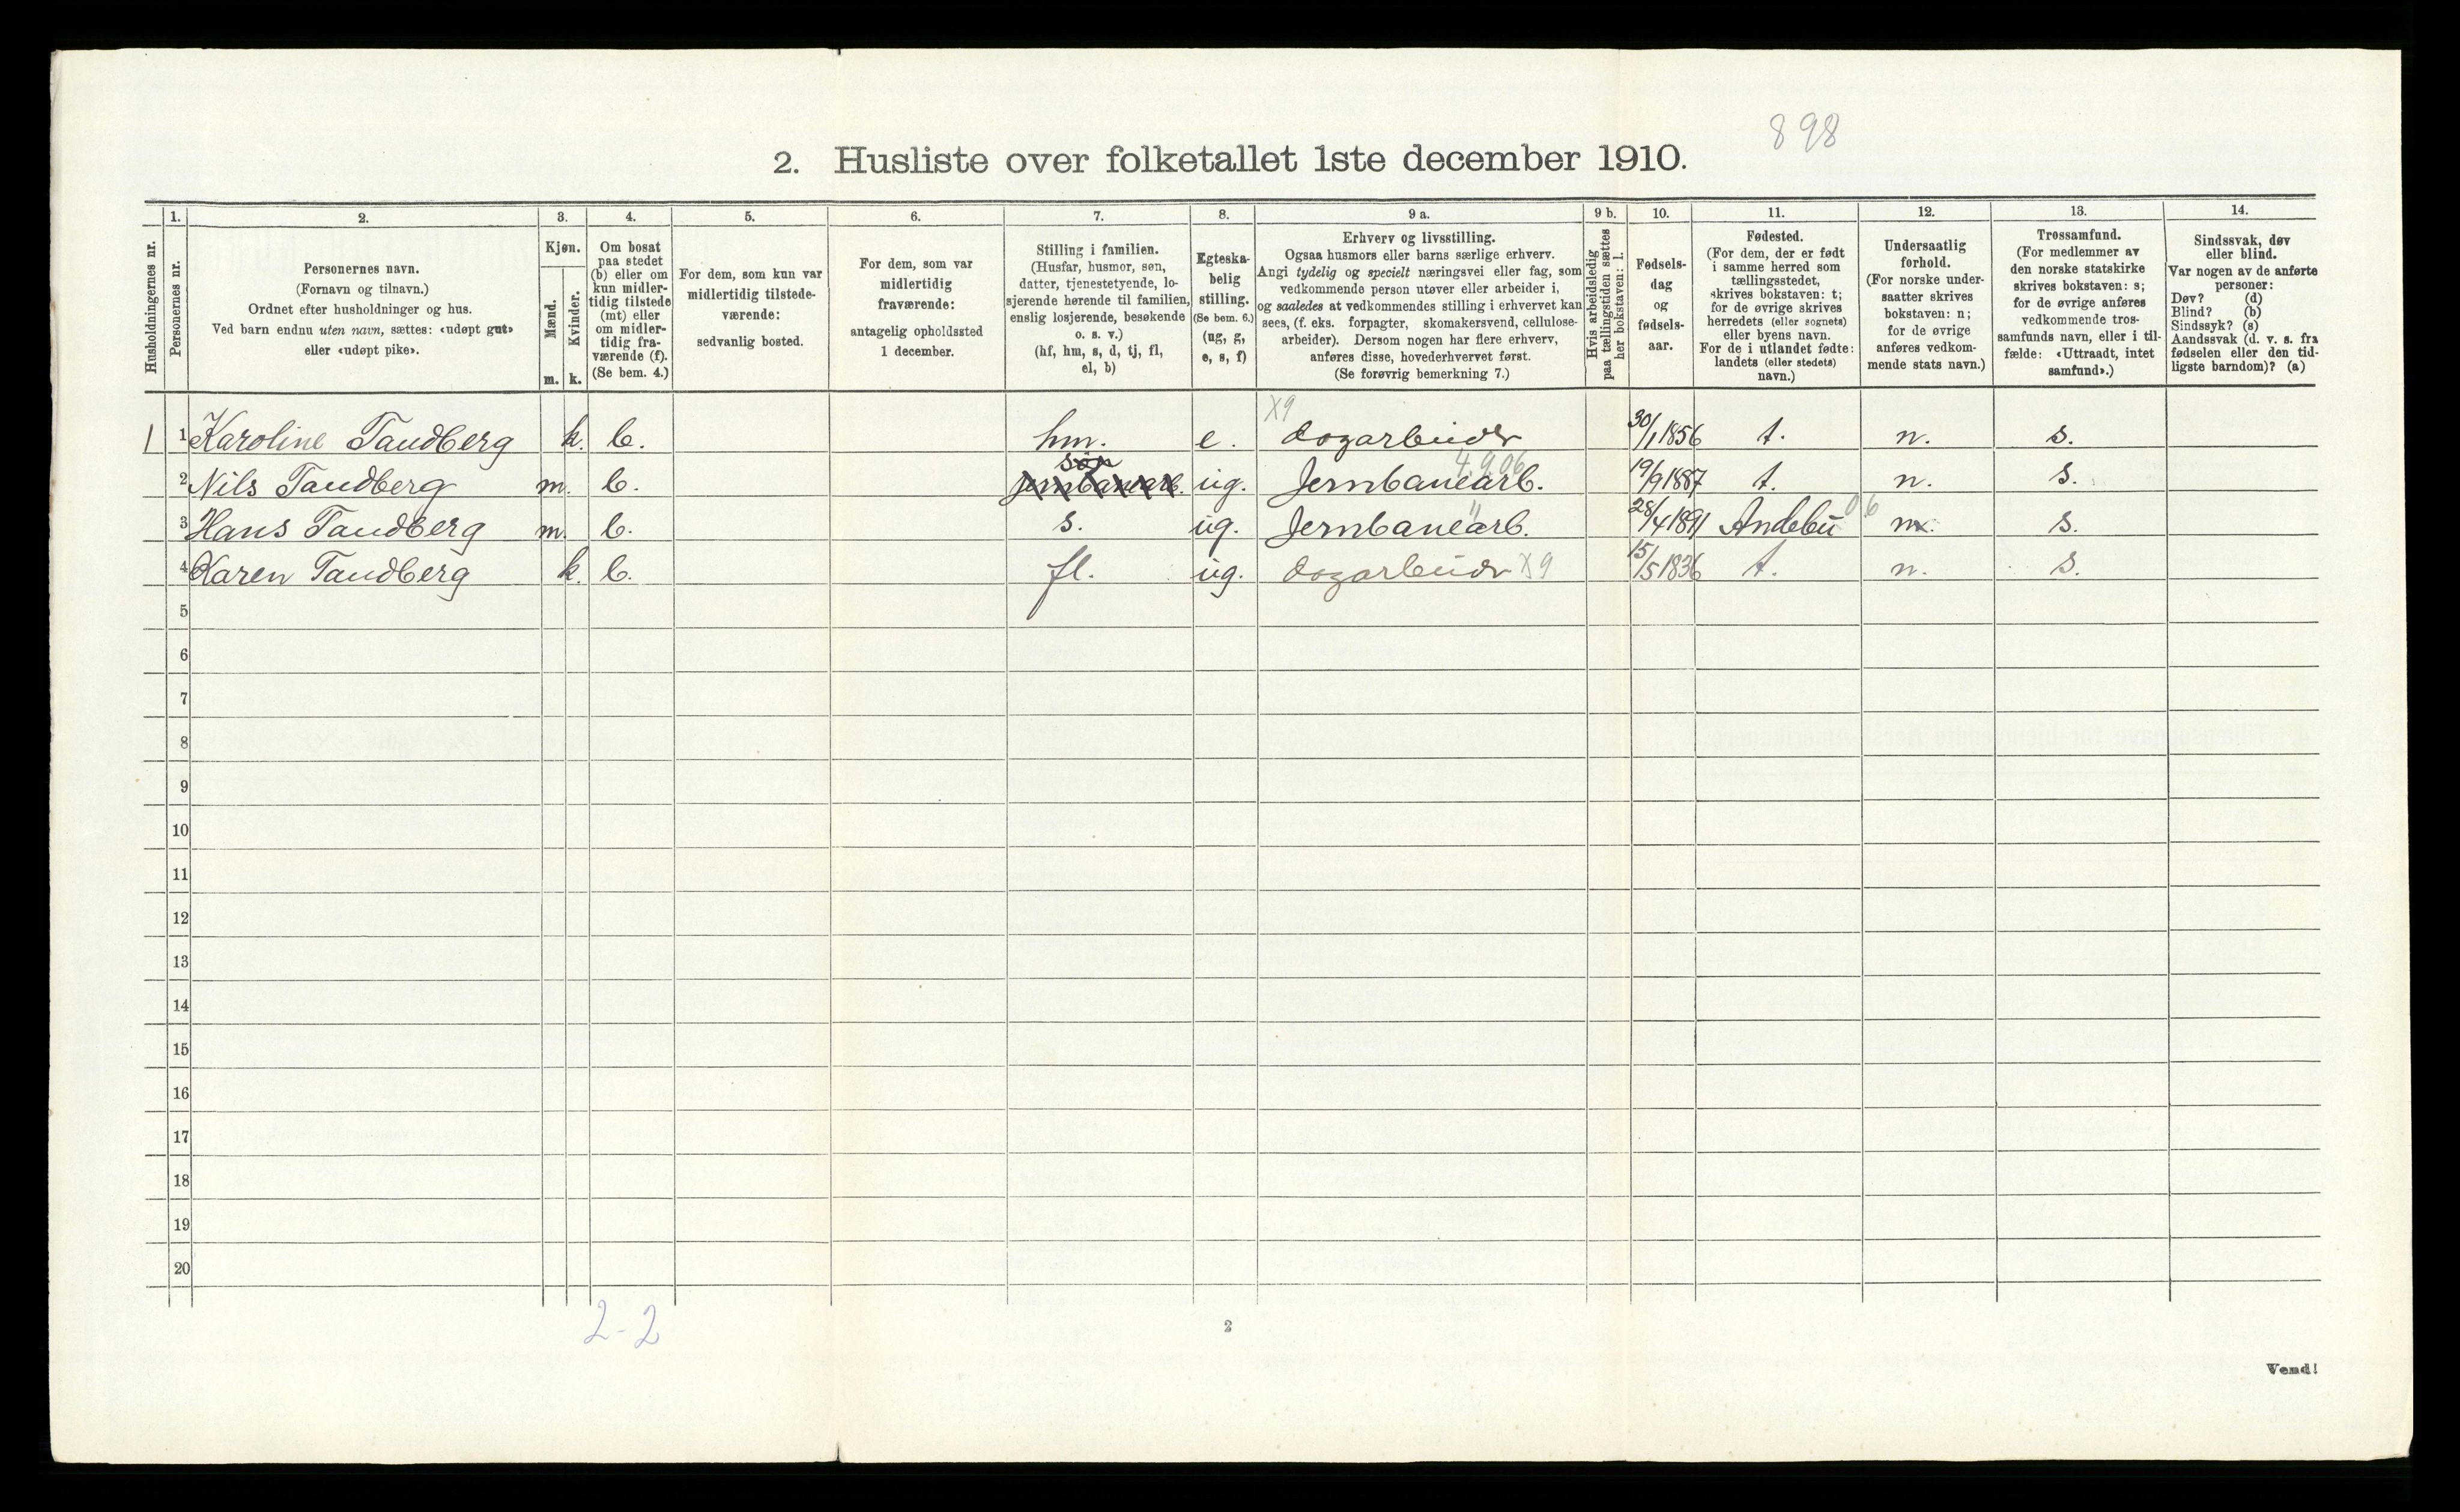 898
2. Husliste over folketallet 1ste december 1910.
1. 2. 3. 4. 5. 6. 7. 8. 9 a. 9 b. 10. 11. 12. 13. 14.
Husholdningernes nr.
Personernes nr.
Personernes navn.
(Fornavn og tilnavn.)
Ordnet efter husholdninger og hus.
Ved barn endnu uten navn, sættes: «udøpt gut»
eller «udøpt pike».
Kjøn.
Mænd.
Kvinder.
m. k.
Om bosat
paa stedet
(b) eller om
kun midler-
tidig tilstede
(mt) eller
om midler-
tidig fra-
værende (f).
(Se bem. 4.)
For dem, som kun var
midlertidig tilstede-
værende:
sedvanlig bosted.
For dem, som var
midlertidig
fraværende:
antagelig opholdssted
1 december.
Stilling i familien.
(Husfar, husmor, søn,
datter, tjenestetyende, lo-
sjerende hørende til familien,
enslig losjerende, besøkende
o. s. v.)
(hf, hm, s, d, tj, fl,
el, b)
Egteska-
belig
stilling.
(Se bem. 6.)
(ug, g,
e, s, f)
Erhverv og livsstilling.
Ogsaa husmors eller barns særlige erhverv.
Angi tydelig og specielt næringsvei eller fag, som
vedkommende person utøver eller arbeider i,
og saaledes at vedkommendes stilling i erhvervet kan
sees, (f. eks. forpagter, skomakersvend, cellulose-
arbeider). Dersom nogen har flere erhverv,
anføres disse, hovederhvervet først.
(Se forøvrig bemerkning 7.)
Hvis arbeidsledig
paa tællingstiden sættes
her bokstaven: l.
Fødsels-
dag
og
fødsels-
aar.
Fødested.
(For dem, der er født
i samme herred som
tællingsstedet,
skrives bokstaven: t;
for de øvrige skrives
herredets (eller sognets)
eller byens navn.
For de i utlandet fødte:
landets (eller stedets)
navn.)
Undersaatlig
forhold.
(For norske under-
saatter skrives
bokstaven: n;
for de øvrige
anføres vedkom-
mende stats navn.)
Trossamfund.
(For medlemmer av
den norske statskirke
skrives bokstaven: s;
for de øvrige anføres
vedkommende tros-
samfunds navn, eller i til-
fælde: «Uttraadt, intet
samfund».)
Sindssvak, døv
eller blind.
Var nogen av de anførte
personer:
Døv? (d)
Blind? (b)
Sindssyk? (s)
Aandssvak (d. v. s. fra
fødselen eller den tid-
ligste barndom)? (a)
X9
1 1 Karoline Tandberg k. b. hm. e. dagarbeider 30/1 1856 t. n. s.
søn 4.9.06
2 Nils Tandberg m. b. Jernbanearb. ug. Jernbanearb. 19/9 1887 t. n. s.
" 06
3 Hans Tandberg m. b. s. ug. Jernbanearb. 28/4 1891 Andebu n. s.
4 Karen Tandberg k. b. fl. ug. dagarbeider X9 15/5 1836 t. n. s.
5
6
7
8
9
10
11
12
13
14
15
16
17
18
19
20
2-2
2
Vend!